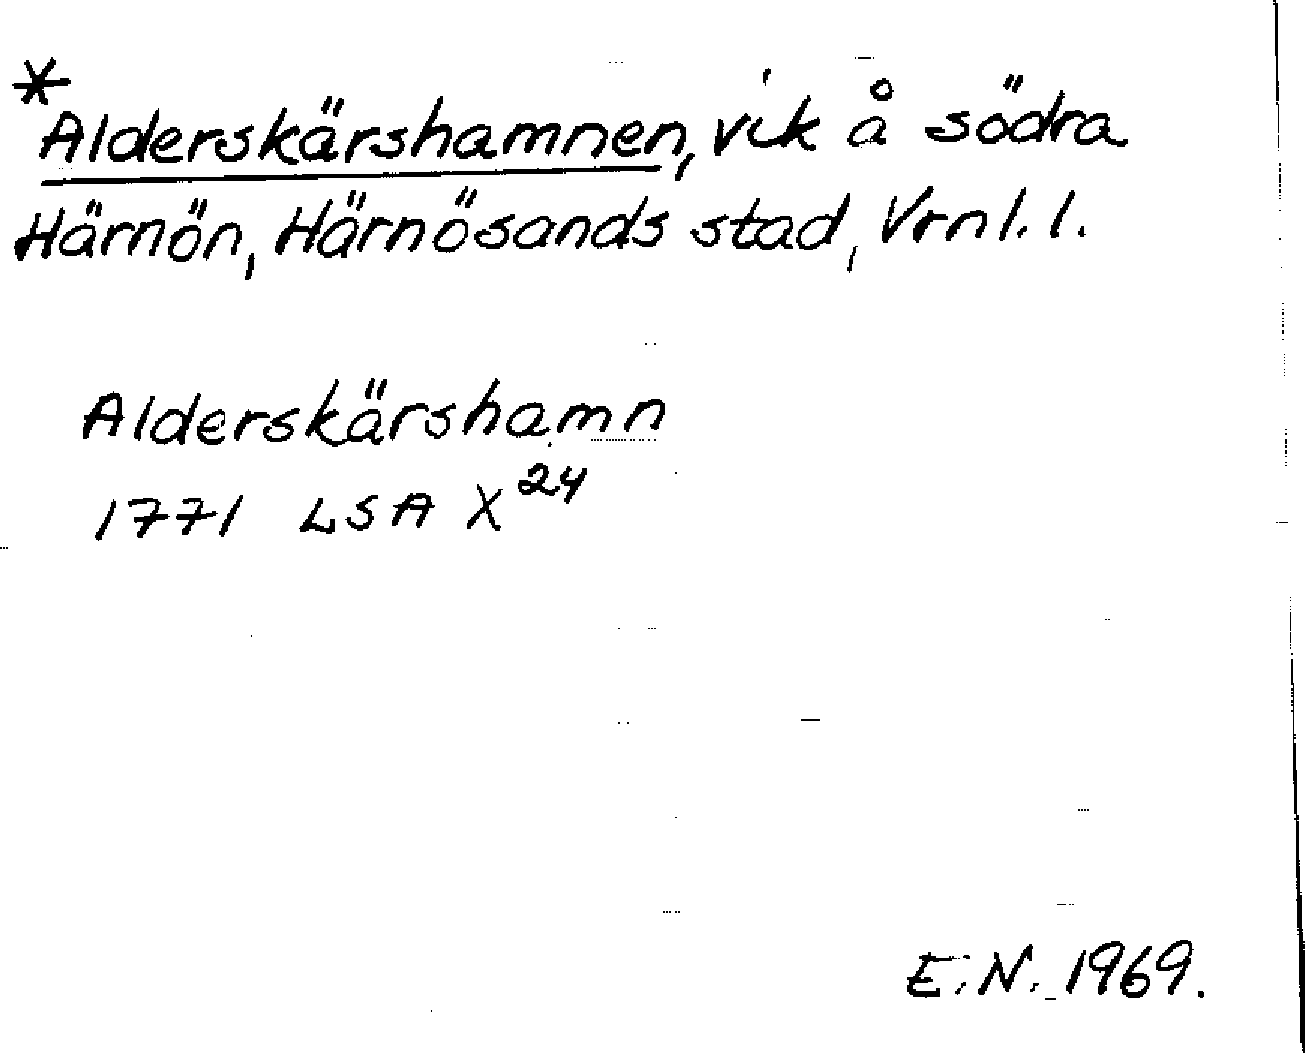 *Alderskärshamnen, vik å södra
Härnön, Härnösands stad, Vrnl. l.
Alderskärshamn
1771 LSA X²⁴
E. N. 1969.